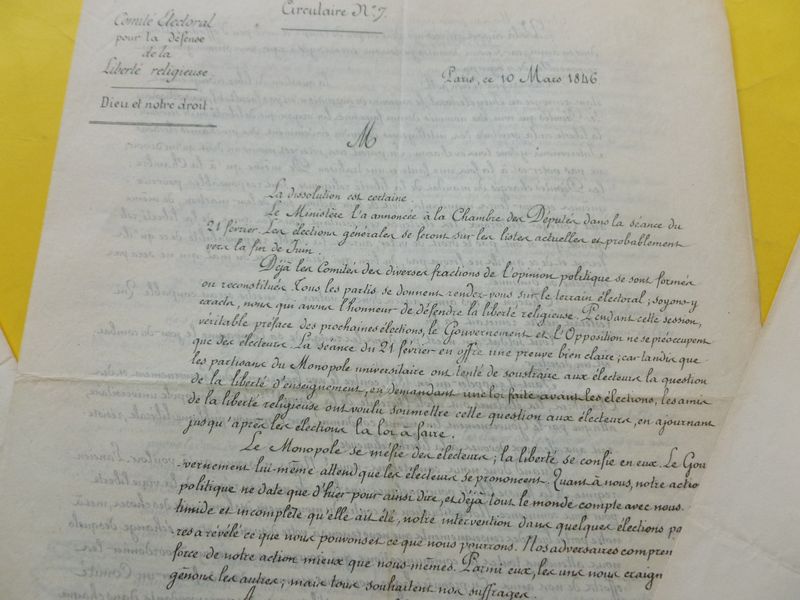 Circulaire N° 7.
Comité Électoral
pour la défense
de la
Liberté religieuse
Dieu et notre droit.
Paris, ce 10 Mars 1846
M
La dissolution est certaine.
Le Ministère l'a annoncée à la Chambre des Députés dans la séance du
21 février. Les élections générales se feront sur les listes actuelles et probablement
vers la fin de Juin.
Déjà les Comités des diverses fractions de l'opinion politique se sont formés
ou reconstitués. Tous les partis se donnent rendez-vous sur le terrain électoral; soyons-y
exacts, nous qui avons l'honneur de défendre la liberté religieuse. Pendant cette session,
véritable préface des prochaines élections, le Gouvernement et l'Opposition ne se préoccupent
que des électeurs. La séance du 21 février en offre une preuve bien claire; car tandis que
les partisans du Monopole universitaire ont tenté de soustraire aux électeurs la question
de la liberté d'enseignement, en demandant une loi faite avant les élections, les amis
de la liberté religieuse ont voulu soumettre cette question aux électeurs, en ajournant
jusqu'après les élections la loi à faire.
Le Monopole se méfie des électeurs; la liberté se confie en eux. Le Gou
-vernement lui-même attend que les électeurs se prononcent. Quant à nous, notre actio
politique ne date que d'hier pour ainsi dire, et déjà tout le monde compte avec nous.
timide et incomplète qu'elle ait été, notre intervention dans quelques élections pa
res a révélé ce que nous pouvons et ce que nous pourrons. Nos adversaires compren
force de notre action mieux que nous-mêmes. Parmi eux, les uns nous craign
gênons les autres; mais tous souhaitent nos suffrages.